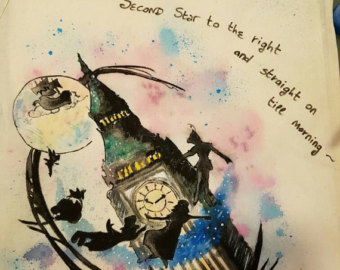 Second Star to the right
and straight on
till morning ~